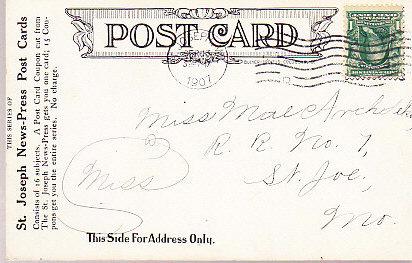 POST CARD
1907
THIS SERIES OF
St. Joseph News-Press Post Cards
Consists of 16 subjects. A Post Card Coupon cut from
The St. Joseph News-Press gets you one card; 15 Cou-
pons get you the entire series. No charge.
Miss Mae
R. R. No. 1,
St. Joe,
Mo.
Miss
This Side For Address Only.